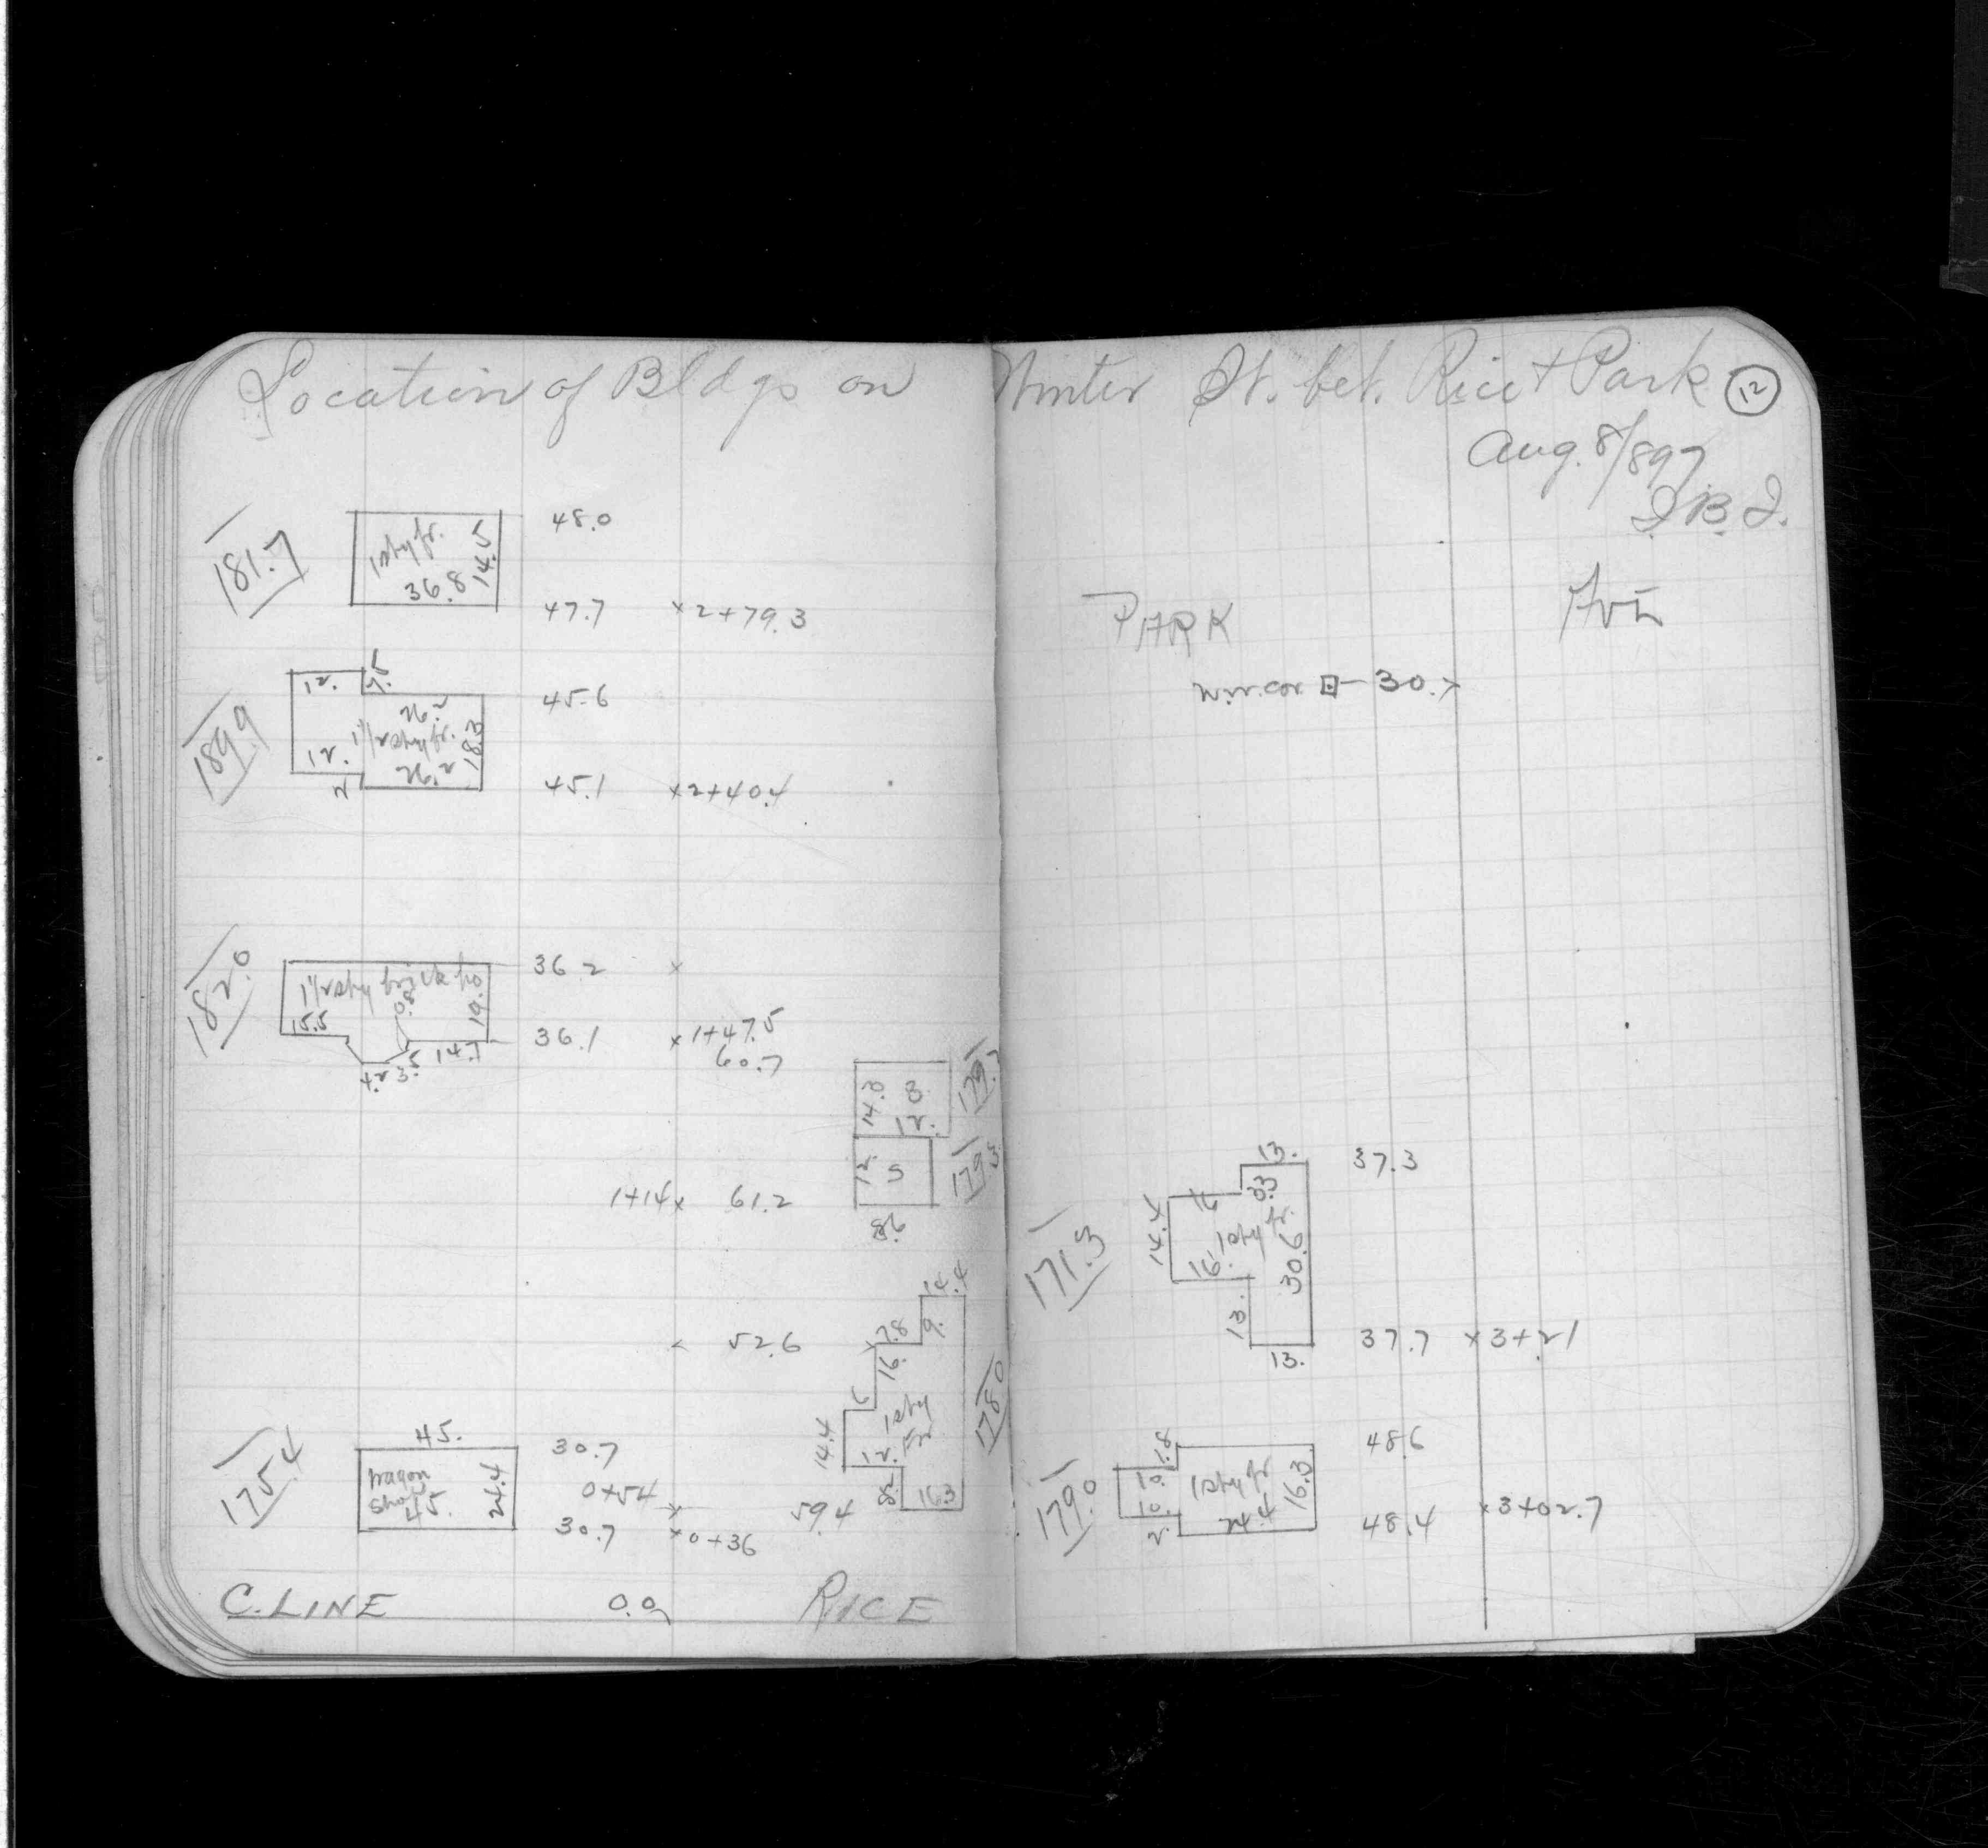 Location of Bldgs on Winter St. bet. Rice + Park 12
Aug. 8/897
181.7
1 sty fr.
36.8
14.5
48.0
47.7 x 2+79.3
189.9
12.
5.
26.2
18.3
12.
26.2
2
45.6
45.1 x 2+40.4
182.0
15.5
19.
4.2
3.5
14.7
36.2 x
36.1 x 1+47.5
60.7
14.3 B
12.
179.7
12. S
1+14 x 61.2
52.6
14.4
9.
7.8
16.
6
14.4
12.
1 sty
16.3
178.0
175.4
45.
Wagon
Shop
45.
24.4
30.7
0+54 x 59.4
30.7 x 0+36
C. LINE 0.0 RICE
PARK AVE
N.W. cor 30.7
171.3
13.
3.3
6
14.4
1 sty fr.
16.
30.6
13.
13.
37.3
37.7 x 3+21
179.0
1.8
10.
10.
2.
1 sty fr
24.4
16.3
48.6
48.4 x 3+02.7